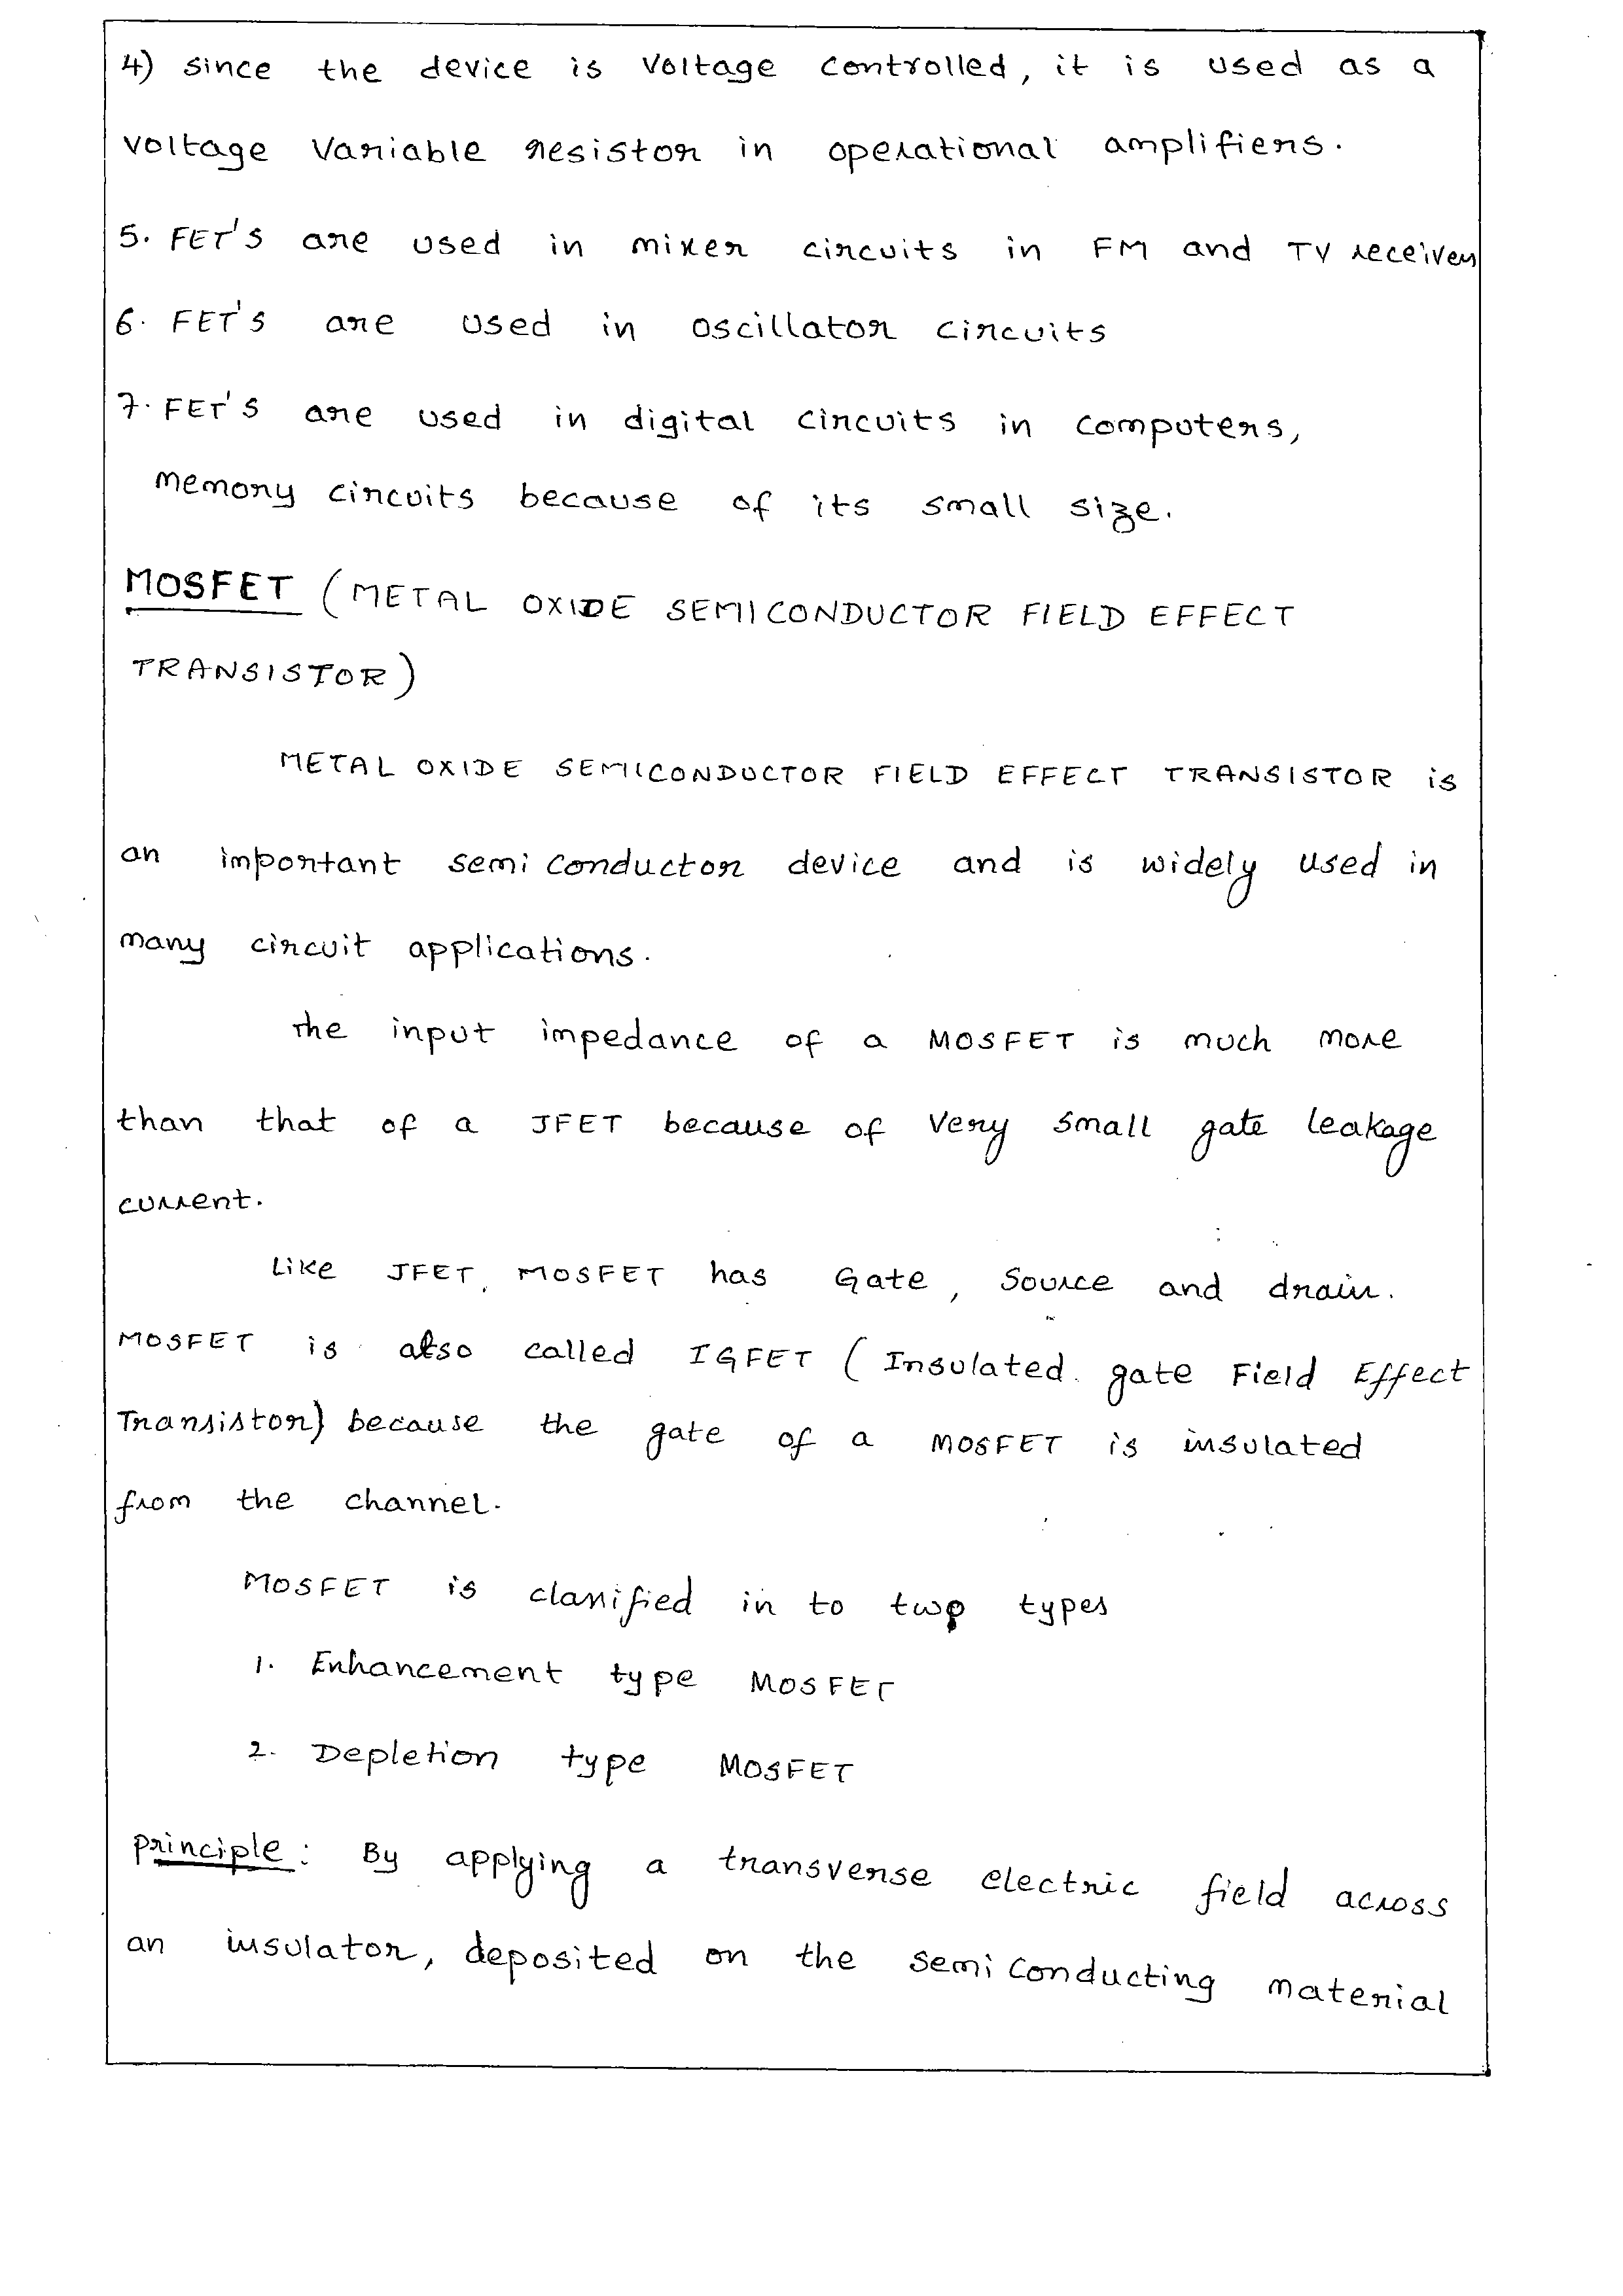 4) since the device is Voltage controlled, it is used as a
voltage Variable resistor in operational amplifiers.
5. FET'S are used in mixer circuits in FM and TV receivers
6. FET'S are used in oscillator circuits
7. FET'S are used in digital circuits in computers,
memory circuits because of its small size.
MOSFET (METAL OXIDE SEMICONDUCTOR FIELD EFFECT
TRANSISTOR)
METAL OXIDE SEMICONDUCTOR FIELD EFFECT TRANSISTOR is
an important semi conductor device and is widely used in
many circuit applications.
The input impedance of a MOSFET is much more
than that of a JFET because of Very small gate leakage
current.
Like JFET, MOSFET has Gate, Source and drain.
MOSFET is also called IGFET (Insulated gate Field Effect
Transistor) because the gate of a MOSFET is insulated
from the channel.
MOSFET is classified in to two types
1. Enhancement type MOSFET
2. Depletion type MOSFET
principle: By applying a transverse electric field across
an insulator, deposited on the semi conducting material